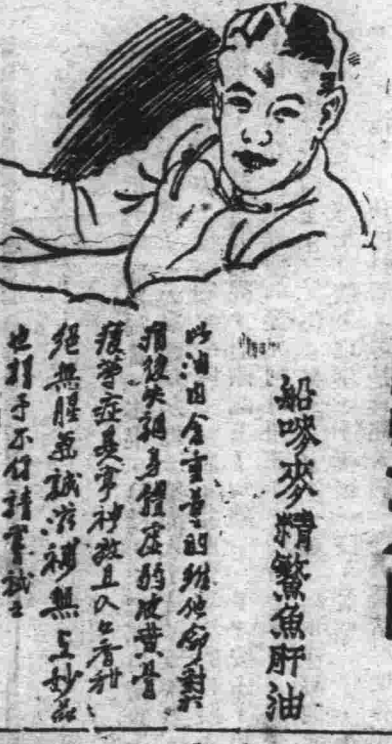 船嘜麥精鰵魚肝油
此油内含重量的維他命對於
病後失調身體虛弱皮黃骨
瘦等症異常神效且入口香甜
絕無腥氣誠滋補無上妙品
也 不信請嘗試之